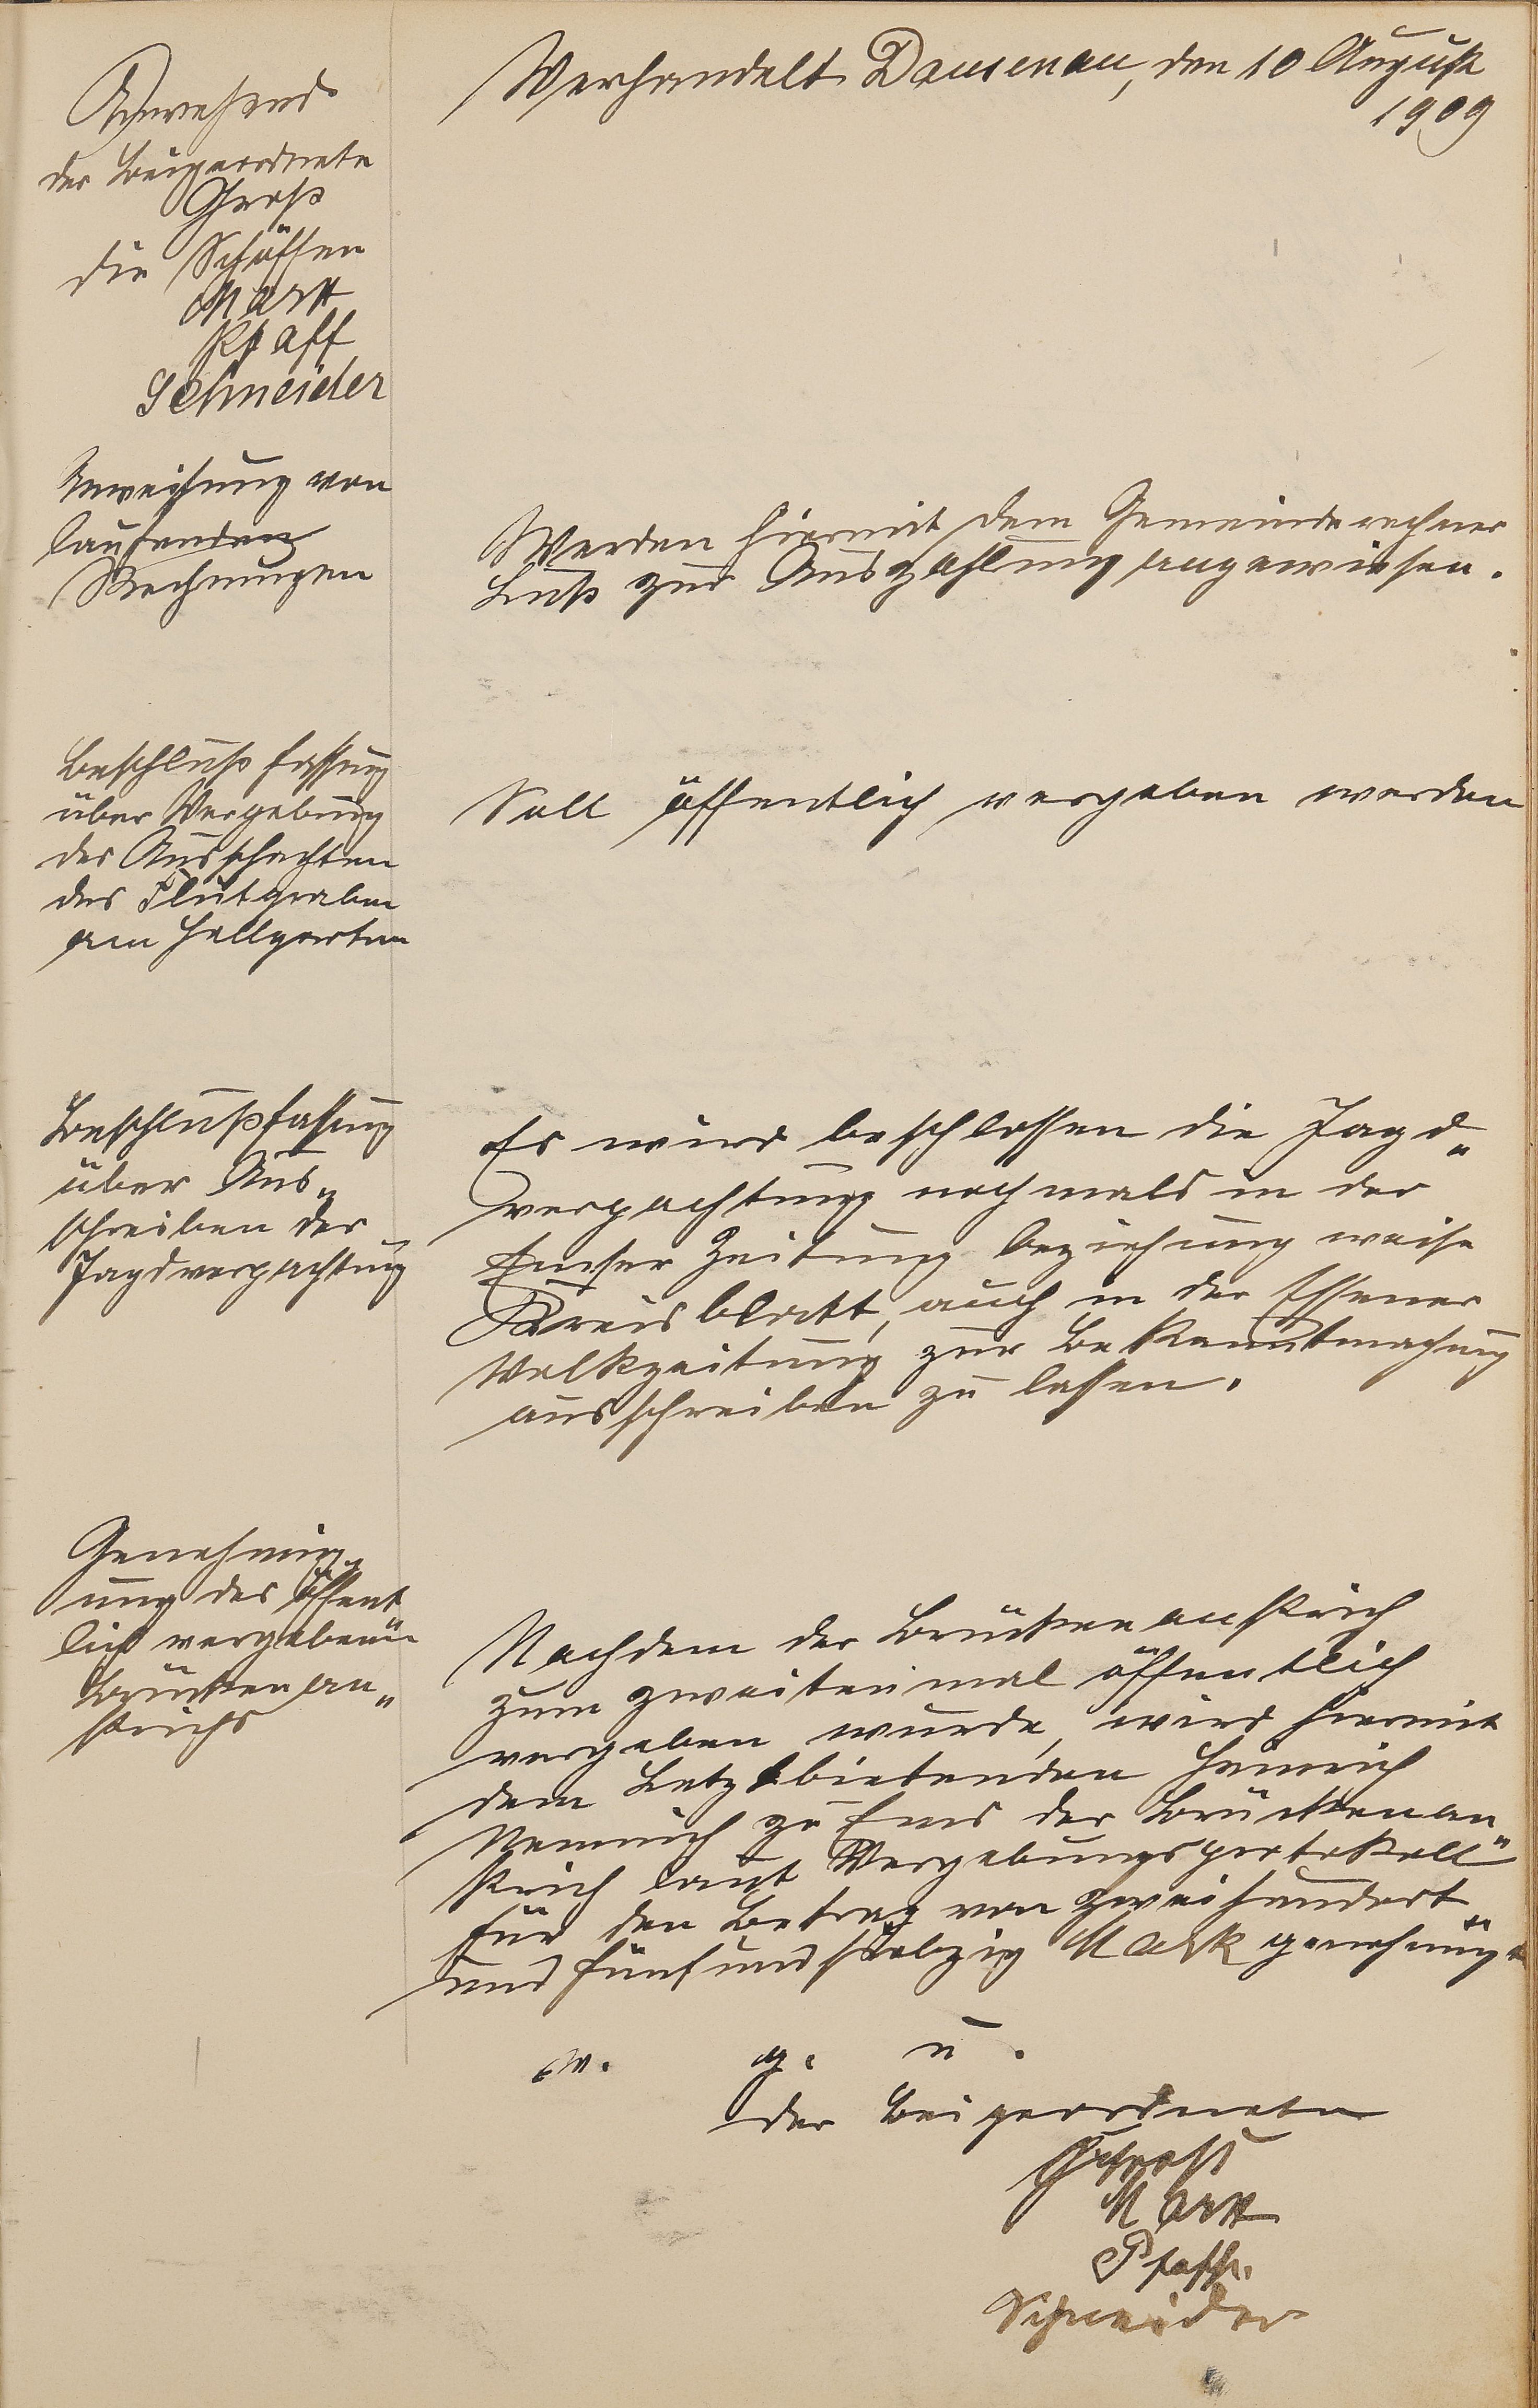 Verhandelt Dausenau, den 10 August
1909
Anwesend
der Beigeordnete
Groß
die Schöffen
Marx
Pfaff
Schneider
Anweisung von
laufenden
Rechnungen
Werden hiermit dem Gemeinderechner
Luß zur Auszahlung angewiesen.
Beschluß fassung
über Vergebung
des Ausschachten
des Flutgraben
am Hallgarten
Soll öffentlich vergeben werden
Beschlußfassung
über Aus„
schreiben der
Jagdverpachtung
Es wird beschlossen die Jagd„
verpachtung nochmals in der
Emser Zeitung beziehung weise
Kreisblatt, auch in der Essener
Volkzeitung zur Bekanntmachung
ausschreiben zu lassen.
Genehmig„
ung des öffent
lich vergebenen
Brückenan„
strichs
Nachdem der Brückenanstrich
zum zweitenmal öffentlich
vergeben wurde, wird hiermit
dem Letztbietenden Heinrich
zu Ems der Brückenan„
strich laut Vergebungsprotokoll
für den Betrag von zweihundert„
und fünfundsiebzig Mark genehmigt
v. g. u.
der Beigeordnete
Groß
Marx
Pfaff.
Schneider